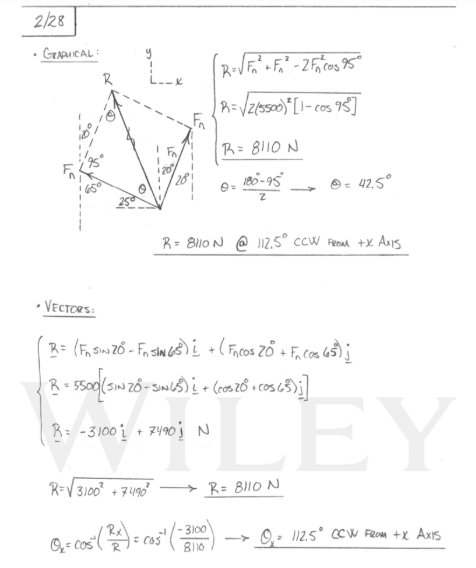 2/28
• GRAPHICAL:
y
x
R
θ
Fₙ
20°
Fₙ
95°
65°
25°
θ
Fₙ
20°
20°
R = √Fₙ² + Fₙ² - 2Fₙ² cos 95°
R = √2(5500)² [1 - cos 95°]
R = 8110 N
θ = 180° - 95° / 2 → θ = 42.5°
R = 8110 N @ 112.5° CCW FROM +X AXIS
• VECTORS:
R = (Fₙ SIN 20° - Fₙ SIN 65°) i + (Fₙ COS 20° + Fₙ COS 65°) j
R = 5500[(SIN 20° - SIN 65°) i + (COS 20° + COS 65°) j]
R = -3100 i + 7490 j N
R = √3100² + 7490² → R = 8110 N
θₓ = cos⁻¹(Rx / R) = cos⁻¹(-3100 / 8110) → θₓ = 112.5° CCW FROM +X AXIS
WILEY